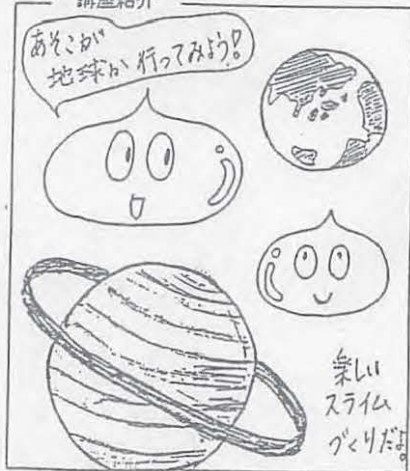 講座紹介
あそこが
地球か 行ってみよう!
楽しい
スライム
づくりだよ。